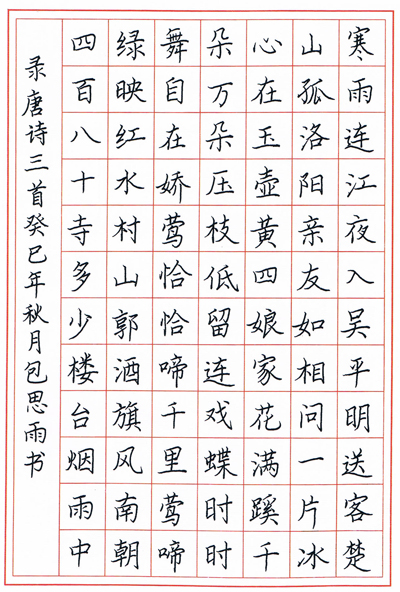 寒雨连江夜入吴平明送客楚
山孤洛阳亲友如相问一片冰
心在玉壶黄四娘家花满蹊千
朵万朵压枝低留连戏蝶时时
舞自在娇莺恰恰啼千里莺啼
绿映红水村山郭酒旗风南朝
四百八十寺多少楼台烟雨中
录唐诗三首癸巳年秋月包思雨书